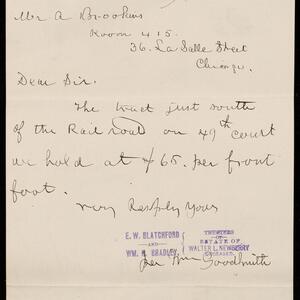 Mr A Brookins
Room 415.
36. La Salle Street
Chicago.
Dear Sir.
The tract just south
of the Rail road on 49th court
we hold at $65. per front
foot.
very Respfly Yours
E. W. BLATCHFORD
AND
WM. H. BRADLEY,
TRUSTEES
ESTATE OF
WALTER L. NEWBERRY
DECEASED.
per Wm Goodsmith